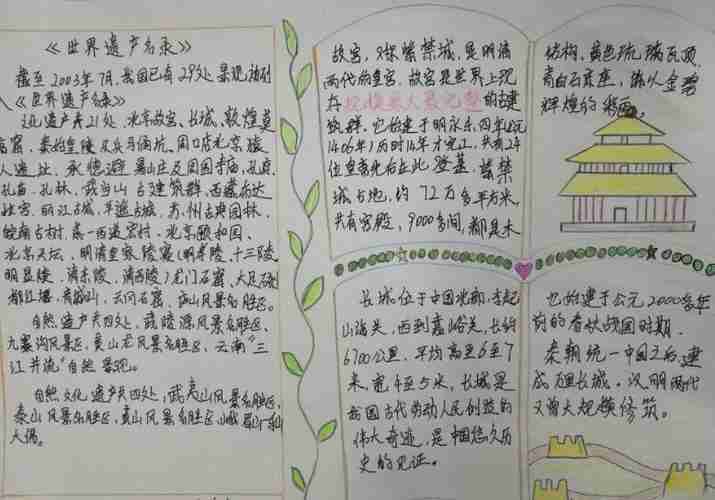 《世界遗产名录》
截至2003年7月,我国已有29处景观被列
入《世界遗产名录》
文化遗产共21处,北京故宫、长城、敦煌莫
高窟、秦始皇陵及兵马俑坑、周口店北京猿
人遗址、承德避暑山庄及周围寺庙、孔府、
孔庙、孔林、武当山古建筑群、西藏布达
拉宫、丽江古城、平遥古城、苏州古典园林、
皖南古村、西递宏村、北京颐和园、
北京天坛、明清皇家陵寝(明孝陵、十三陵
明显陵、清东陵、清西陵)龙门石窟、大足石刻
都江堰、青城山、云冈石窟、庐山风景名胜区。
自然遗产共四处,武陵源风景名胜区、
九寨沟风景区、黄山龙风景名胜区、云南"三
江并流"自然景观。
自然文化遗产共四处,武夷山风景名胜区,
泰山风景名胜区、黄山风景名胜区、峨眉山—乐山
大佛。
故宫,又称紫禁城,是明清
两代的皇宫,故宫是世界上现
存规模最大最完整的古建
筑群。它始建于明永乐四年(公元
1406年)历时14年才完工,共有24
位皇帝先后在此登基。紫禁
城占地,约72万多平方米,
共有宫殿,9000多间,都是木
结构,黄色琉璃瓦顶,
青白石底座,饰以金碧
辉煌的彩画。
长城位于中国北部,东起
山海关,西到嘉峪关,长约
6700公里,平均高6至7
米,宽4至5米,长城是
我国古代劳动人民创造的
伟大奇迹,是中国悠久历
史的见证。
它始建于公元2000多年
前的春秋战国时期。
秦朝统一中国之后,建
成万里长城。汉、明两代
又曾大规模修筑。